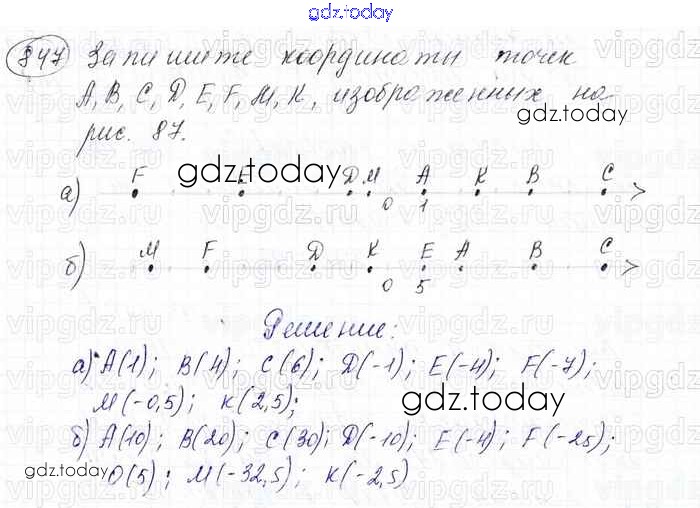 gdz.today
847 Запишите координаты точек
A, B, C, D, E, F, M, K, изображенных на
рис. 87.
gdz.today
gdz.today
а) F E D M A K B C
0 1
б) M F D K E A B C
0 5
Решение:
а) A(1); B(4); C(6); D(-1); E(-4); F(-7);
M(-0,5); K(2,5);
gdz.today
б) A(10); B(20); C(30); D(-10); E(-4); F(-25);
gdz.today
O(5); M(-32,5); K(-2,5)